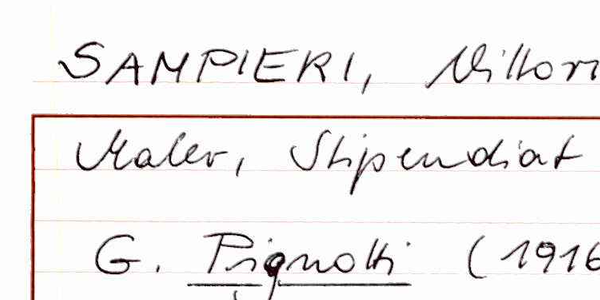 SAMPIERI, Vittori
Maler, Stipendiat
G. Pignotti (1916